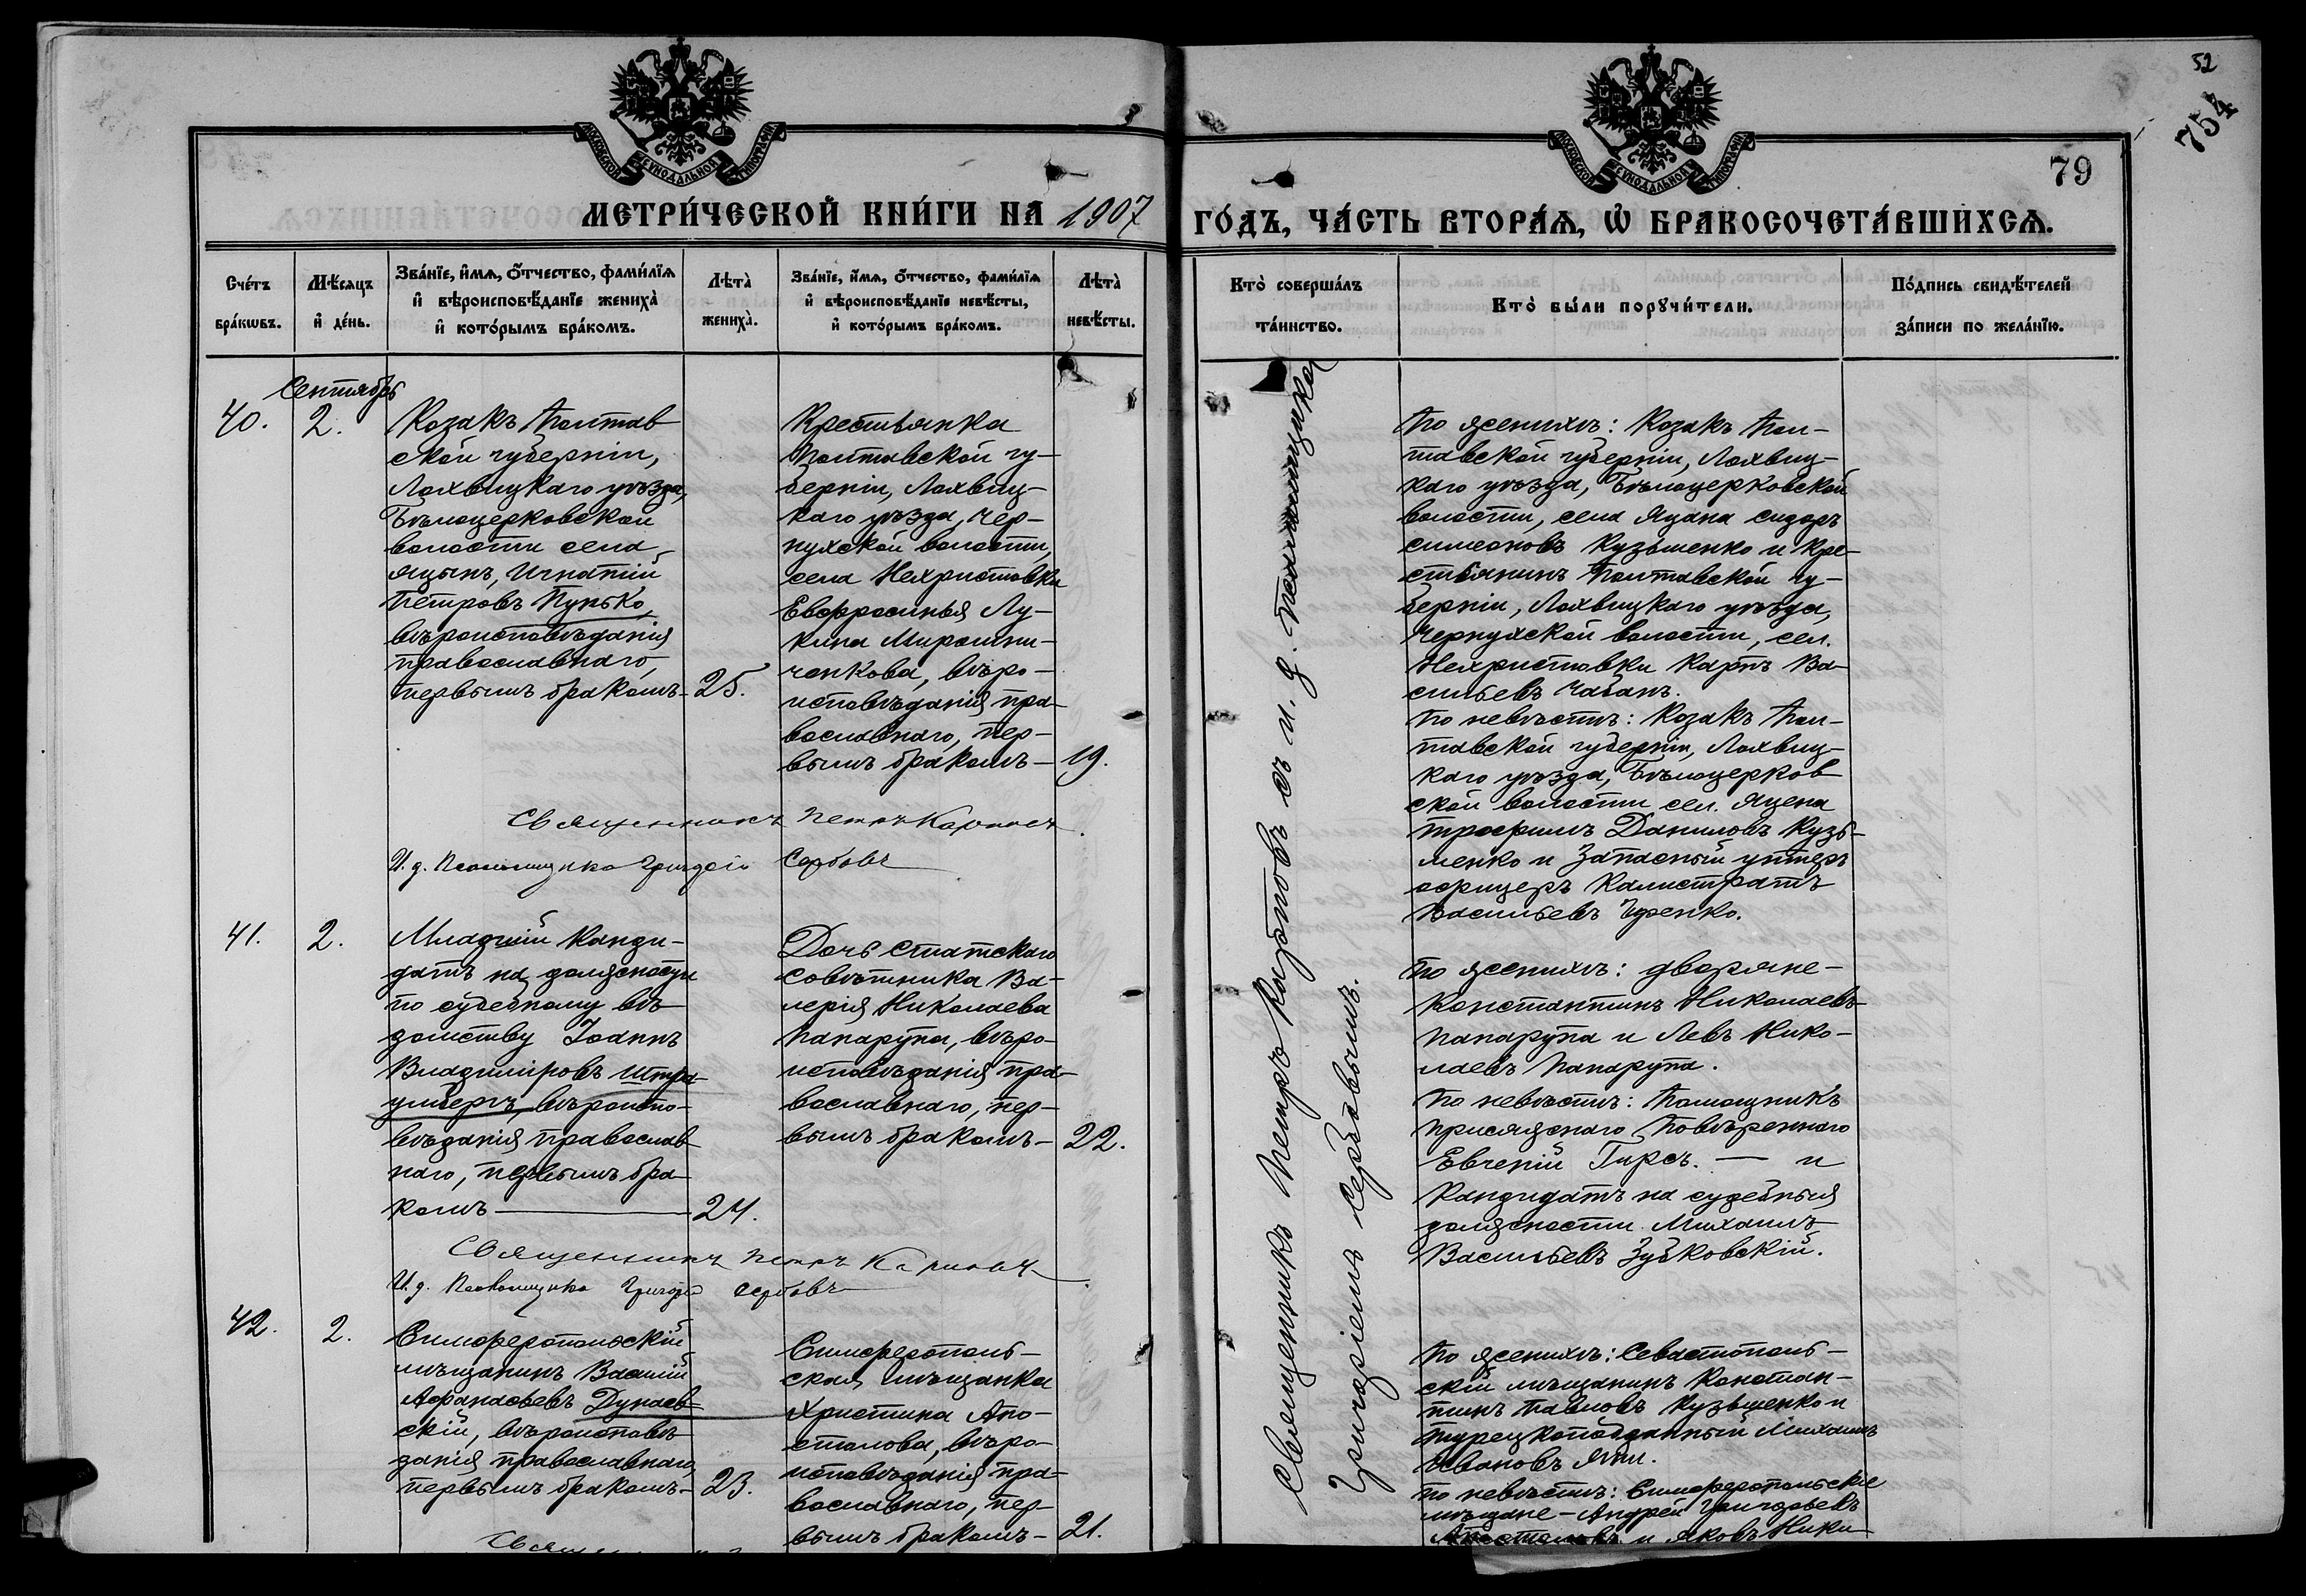 52
754
79
МОСКОВСКОЙ СѴНОДАЛЬНОЙ ТИПОГРАФІИ
МОСКОВСКОЙ СѴНОДАЛЬНОЙ ТИПОГРАФІИ
МЕТРИ́ЧЕСКОЙ КНИ́ГИ НА 1907
ГО́ДЪ, ЧА́СТЬ ВТОРА́Ѧ, Ѡ҆ БРАКОСОЧЕТА́ВШИХСѦ.
Сче́тъ
бра́кѡвъ.
Мѣ́сяцъ
и҆ де́нь.
Зва́нїе, и҆́мѧ, о҆́тчество, фами́лїѧ
и҆ вѣроисповѣ́данїе жениха̀
и҆ кото́рымъ бра́комъ.
Лѣта̀
жениха̀.
Зва́нїе, и҆́мѧ, о҆́тчество, фами́лїѧ
и҆ вѣроисповѣ́данїе невѣ́сты,
и҆ кото́рымъ бра́комъ.
Лѣта̀
невѣ́сты.
Кто̀ соверша́лъ
та́инство.
Кто̀ бы́ли порꙋчи́тели.
По́дпись свидѣ́телей
за́писи по жела́нїю.
Сентябрь
40.
2.
Козакъ Полтав
ской губерніи,
Лохвицкаго уѣзда,
Бѣлоцерковской
волости села
Яцынъ, Игнатій
Петровъ Пунько,
вѣроисповѣданія
православнаго,
первымъ бракомъ- 25.
Крестьянка
Полтавской гу-
берніи, Лохвиц-
каго уѣзда, Чер-
нухской волости,
села Нехристовки
Евфросинья Лу-
кина Мирошни-
ченкова, вѣро-
исповѣданія пра-
вославнаго, пер-
вымъ бракомъ- 19.
Священникъ Петръ Карповъ.
И. д. Псаломщика Григорій Сербовъ
По женихѣ: Козакъ Пол-
тавской губерніи, Лохвиц-
каго уѣзда, Бѣлоцерковской
волости, села Яцана Сидоръ
Симеоновъ Кузьменко и Кре-
стьянинъ Полтавской гу-
берніи, Лохвицкаго уѣзда,
Чернухской волости, сел.
Нехристовки Карпъ Ва-
сильевъ Чабанъ.
По невѣстѣ: Козакъ Пол-
тавской губерніи, Лохвиц-
каго уѣзда, Бѣлоцерков
ской волости сел. Яцена
Трофимъ Даниловъ Кузь-
менко и Запасный унтеръ
офицеръ Калистратъ
Васильевъ
41.
2.
Младшій Канди-
датъ на должности
по судебному вѣ-
домству Іоаннъ
Владиміровъ Штра-
умбергъ, вѣроиспо-
вѣданія православ
наго, первымъ бра-
комъ- 24.
Дочь статскаго
совѣтника Ва-
лерія Николаева
Папарупа, вѣро-
исповѣданія пра-
вославнаго, пер-
вымъ бракомъ- 22.
Священникъ Петръ Карповъ.
И. д. Псаломщика Григорій Сербовъ
По женихѣ: дворяне-
Константинъ Николаевъ
Папарупа и Левъ Нико-
лаевъ Папарупа.
По невѣстѣ: Помощникъ
присяжнаго Повѣреннаго
Евгеній Гирсъ. — и
Кандидатъ на судебныя
должности Михаилъ
Васильевъ Зубковскій.
42.
2.
Симферопольскій
мѣщанинъ Василій
Афанасьевъ Дунаев-
скій, вѣроисповѣ-
данія православнаго,
первымъ бракомъ- 23.
Симферополь-
ская мѣщанка
Христина Апо-
столова, вѣро-
исповѣданія пра-
вославнаго, пер-
вымъ бракомъ- 21.
По женихѣ: Севастополь-
скій мѣщанинъ Констан-
тинъ Павловъ Кузьменко и
турецкоподданный Михаилъ
Ивановъ
По невѣстѣ: Симферопольскіе
мѣщане - Андрей Григорьевъ
Апостоловъ и Яковъ Нико
Священникъ Петръ Карповъ съ и. д. псаломщика
Григоріемъ Сербовымъ.